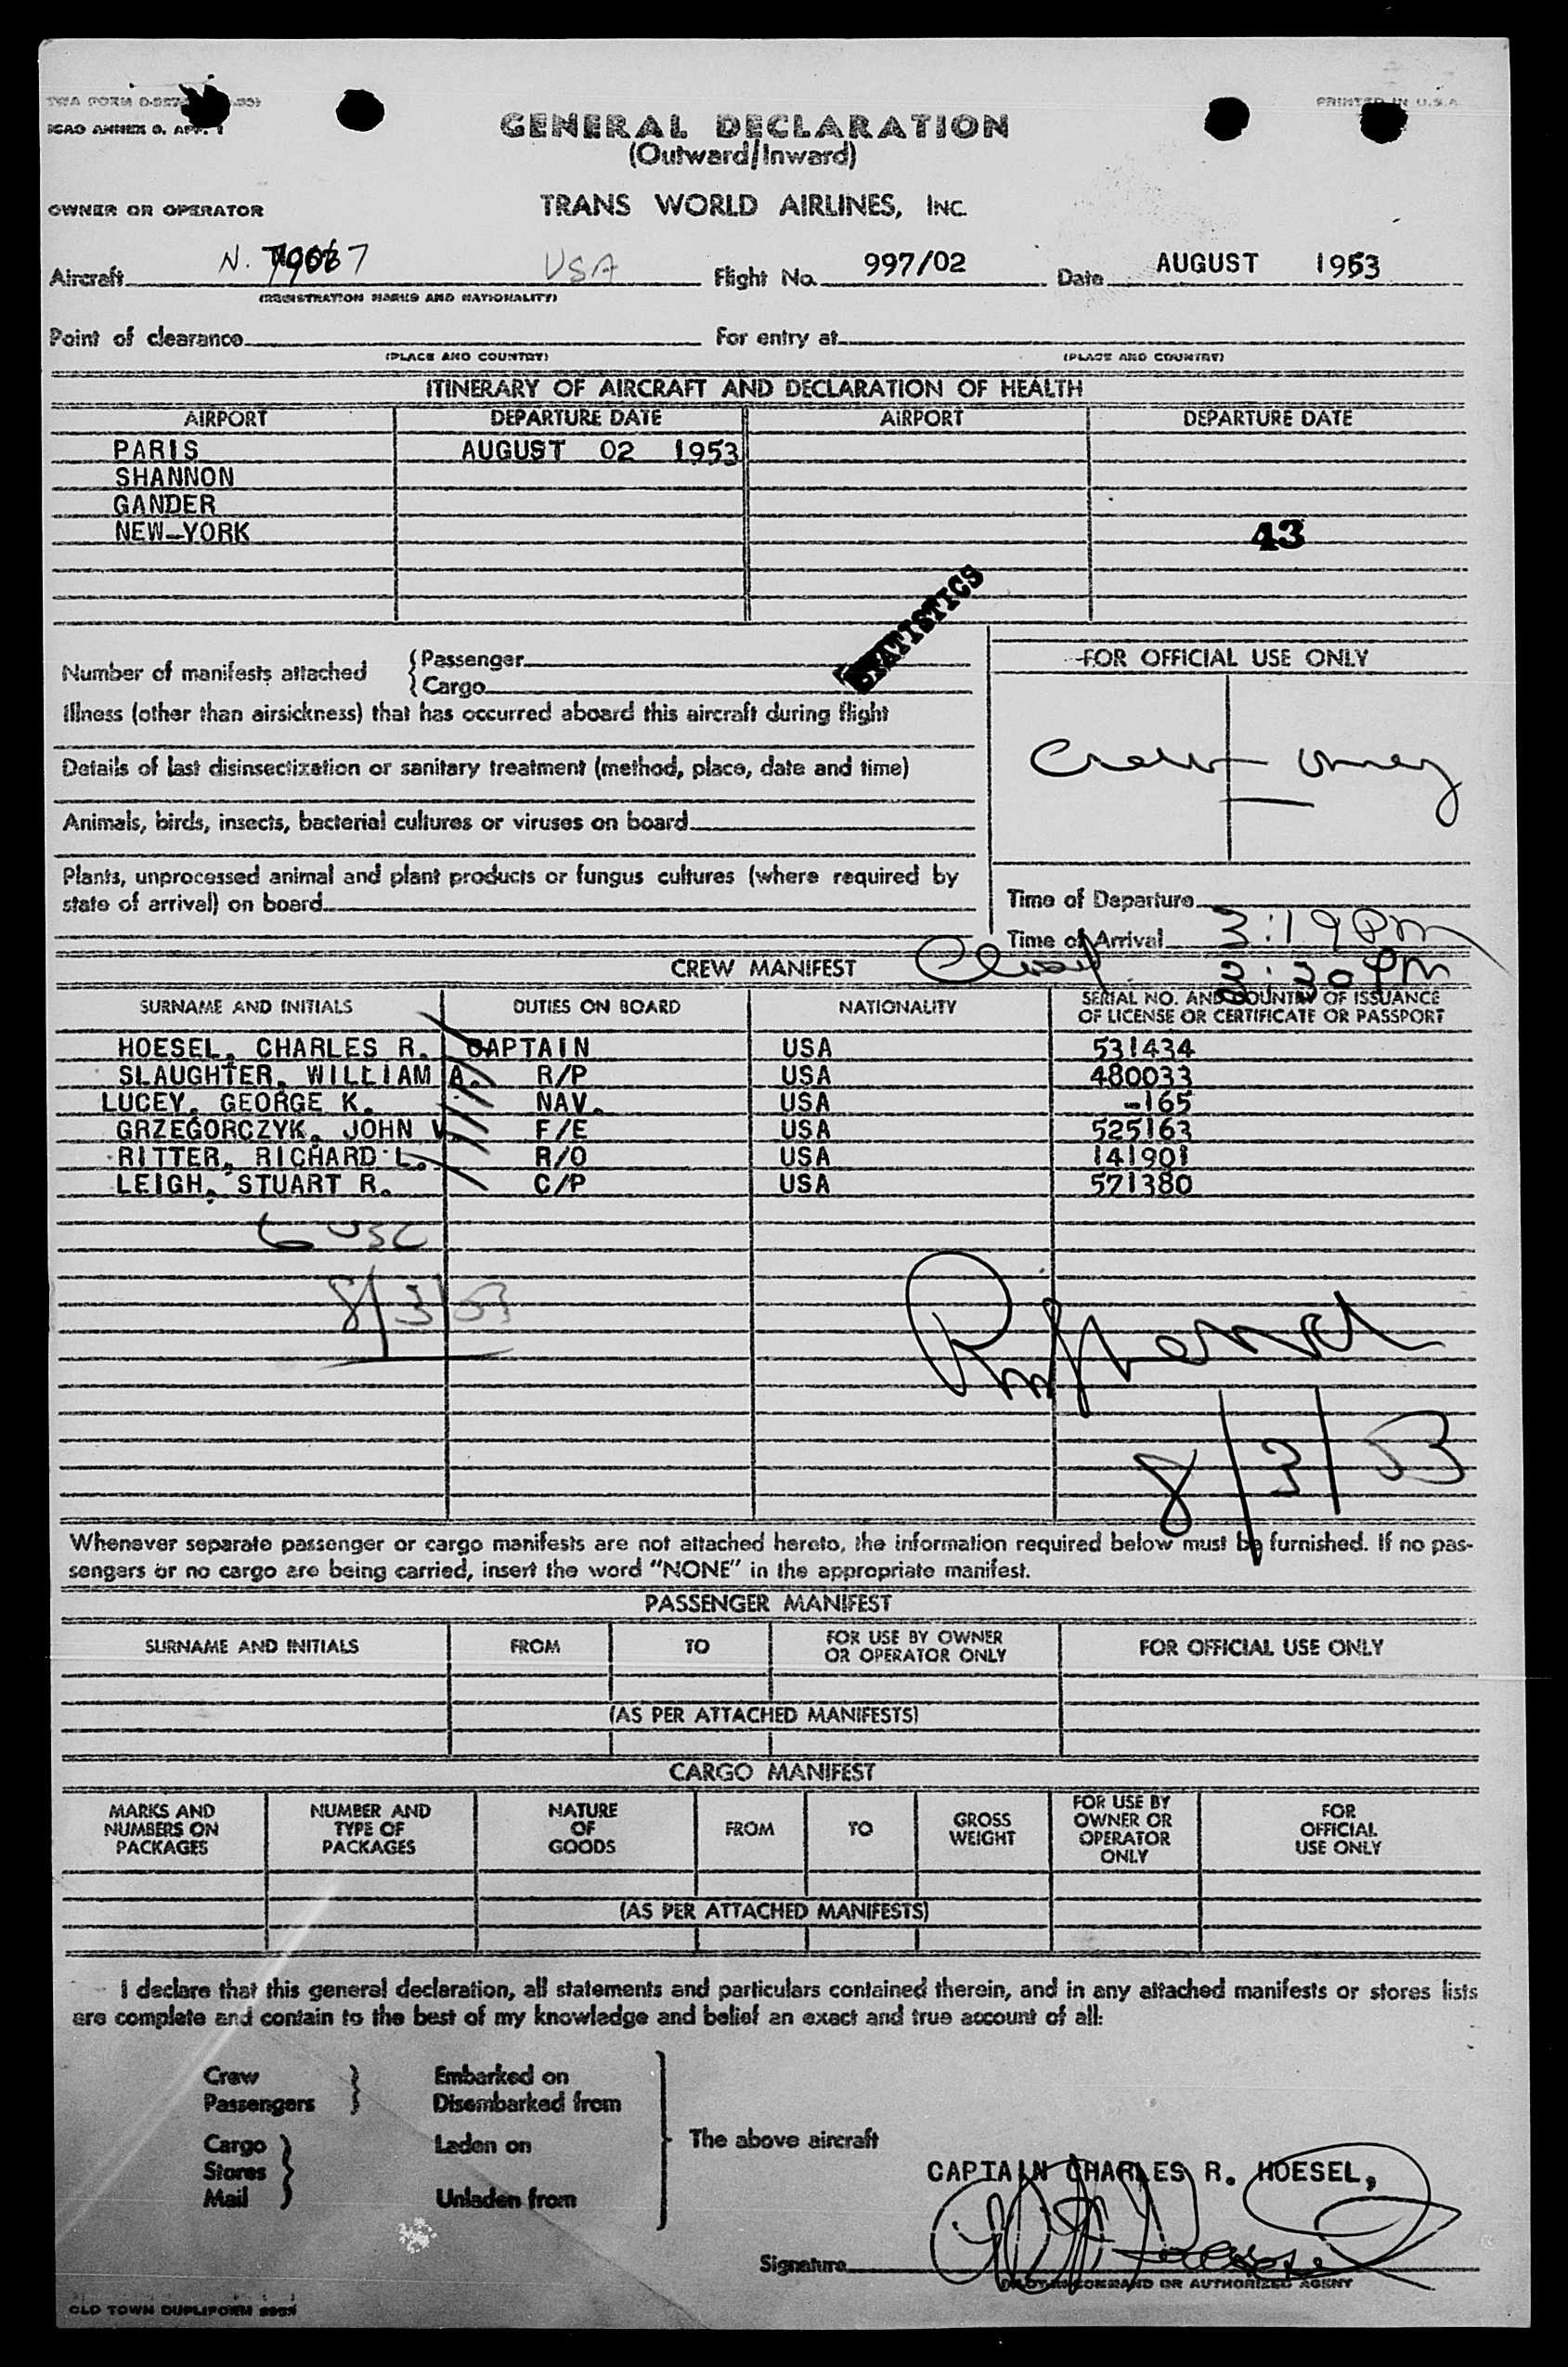 TWA FORM D-
PRINTED IN U.S.A.
ICAO ANNEX 9, APP. 1
GENERAL DECLARATION
(Outward/Inward)
OWNER OR OPERATOR
TRANS WORLD AIRLINES, INC.
Aircraft N. USA Flight No. 997/02 Date AUGUST 1953
(REGISTRATION MARKS AND NATIONALITY)
Point of clearance For entry at
(PLACE AND COUNTRY) (PLACE AND COUNTRY)
ITINERARY OF AIRCRAFT AND DECLARATION OF HEALTH
AIRPORT DEPARTURE DATE AIRPORT DEPARTURE DATE
PARIS AUGUST 02 1953
SHANNON
GANDER
NEW-YORK 43
STATISTICS
Number of manifests attached { Passenger
{ Cargo
FOR OFFICIAL USE ONLY
Illness (other than airsickness) that has occurred aboard this aircraft during flight
Details of last disinsectization or sanitary treatment (method, place, date and time)
Crew only
Animals, birds, insects, bacterial cultures or viruses on board
Plants, unprocessed animal and plant products or fungus cultures (where required by
state of arrival) on board
Time of Departure
Time of Arrival 3:19 PM
3:30 PM
CREW MANIFEST
SURNAME AND INITIALS DUTIES ON BOARD NATIONALITY SERIAL NO. AND COUNTRY OF ISSUANCE
OF LICENSE OR CERTIFICATE OR PASSPORT
HOESEL, CHARLES R. CAPTAIN USA 531434
SLAUGHTER, WILLIAM A. R/P USA 480033
LUCEY, GEORGE K. NAV. USA -165
GRZEGORCZYK, JOHN V. F/E USA 525163
RITTER, RICHARD L. R/O USA 141901
LEIGH, STUART R. C/P USA 571380
6 USC
8/3/53
8/3/53
Whenever separate passenger or cargo manifests are not attached hereto, the information required below must be furnished. If no pas-
sengers or no cargo are being carried, insert the word "NONE" in the appropriate manifest.
PASSENGER MANIFEST
SURNAME AND INITIALS FROM TO FOR USE BY OWNER OR OPERATOR ONLY FOR OFFICIAL USE ONLY
(AS PER ATTACHED MANIFESTS)
CARGO MANIFEST
MARKS AND NUMBERS ON PACKAGES NUMBER AND TYPE OF PACKAGES NATURE OF GOODS FROM TO GROSS WEIGHT FOR USE BY OWNER OR OPERATOR ONLY FOR OFFICIAL USE ONLY
(AS PER ATTACHED MANIFESTS)
I declare that this general declaration, all statements and particulars contained therein, and in any attached manifests or stores lists
are complete and contain to the best of my knowledge and belief an exact and true account of all:
Crew } Embarked on
Passengers } Disembarked from
The above aircraft
Cargo } Laden on
Stores }
Mail } Unladen from
CAPTAIN CHARLES R. HOESEL,
Signature
PILOT IN COMMAND OR AUTHORIZED AGENT
OLD TOWN DUPLIFORM